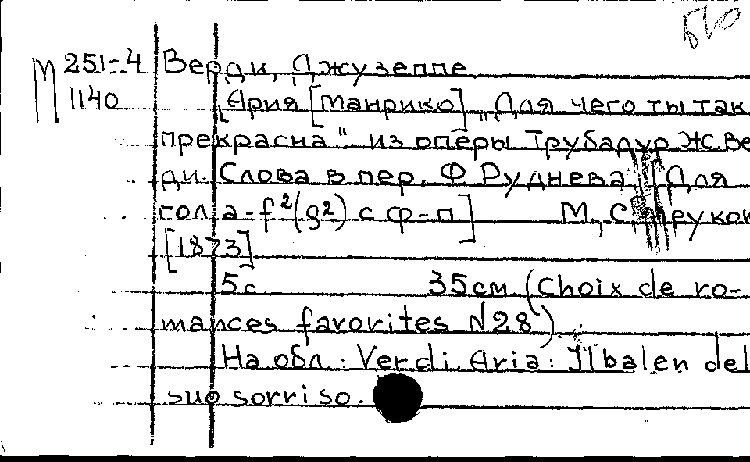 бю
М 251-4 Верди, Джузеппе
1140 [Ария [Манрико] „Для чего ты так
прекрасна" из оперы Трубадур Ж. Ве
ди. Слова в пер. Ф. Руднева. [Для
гол a-f²(g²) с ф-п] М., С.
[1873]
5с 35см (Choix de ro-
mances favorites N28)
На обл.: Verdi. Aria: Il balen del
suo sorriso.